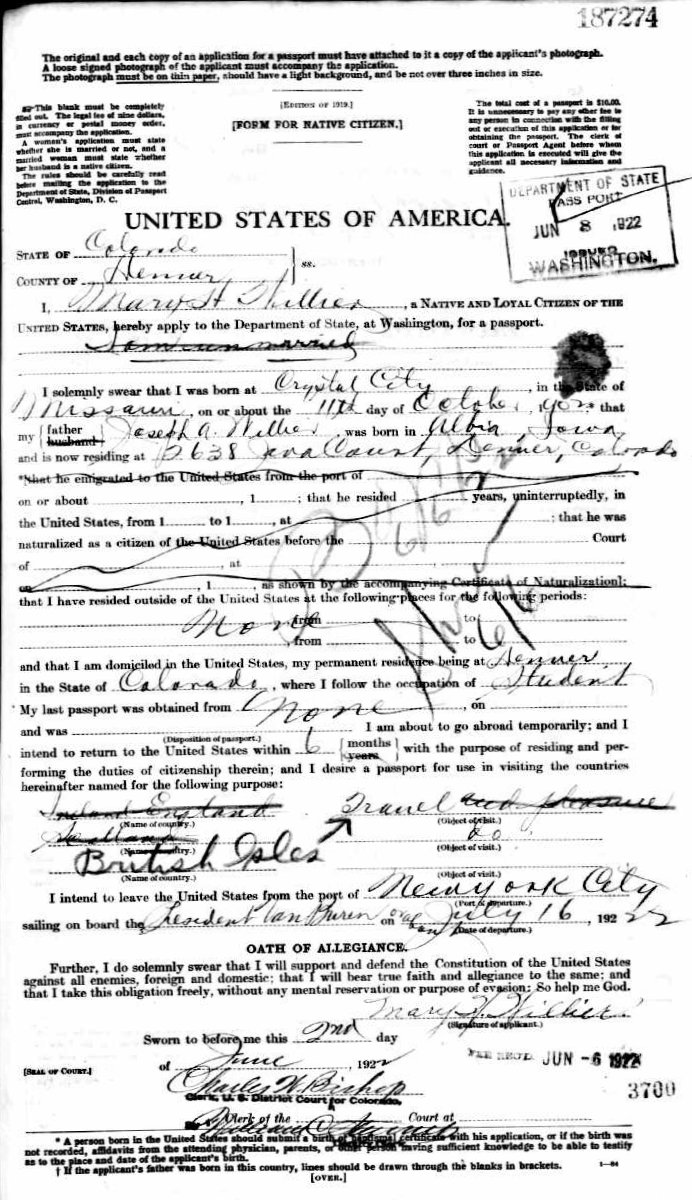 187274
The original and each copy of an application for a passport must have attached to it a copy of the applicant's photograph.
A loose signed photograph of the applicant must accompany the application.
The photograph must be on thin paper, should have a light background, and be not over three inches in size.
This blank must be completely
filled out. The legal fee of nine dollars,
in currency or postal money order,
must accompany the application.
A woman's application must state
whether she is married or not, and a
married woman must state whether
her husband is a native citizen.
The rules should be carefully read
before mailing the application to the
Department of State, Division of Passport
Control, Washington, D. C.
[EDITION OF 1919.]
[FORM FOR NATIVE CITIZEN.]
The total cost of a passport is $10.00.
It is unnecessary to pay any other fee to
any person in connection with the filling
out or execution of this application or for
obtaining the passport. The clerk of
court or Passport Agent before whom
this application is executed will give the
applicant all necessary information and
guidance.
DEPARTMENT OF STATE
PASSPORT
JUN 8 1922
ISSUED
WASHINGTON.
UNITED STATES OF AMERICA.
STATE OF Colorado
COUNTY OF Denver ss.
I, Mary H Willier, a NATIVE AND LOYAL CITIZEN OF THE
UNITED STATES, hereby apply to the Department of State, at Washington, for a passport.
I am unmarried
I solemnly swear that I was born at Crystal City, in the State of
Missouri, on or about the 11th day of October, 1902 that
my {father husband} Joseph A. Willier, was born in Albia, Iowa
and is now residing at 2638 Java Court, Denver, Colorado
*that he emigrated to the United States from the port of
on or about , 1 ; that he resided years, uninterruptedly, in
the United States, from 1 to 1 , at ; that he was
naturalized as a citizen of the United States before the Court
of , at ,
on , 1 , as shown by the accompanying Certificate of Naturalization];
that I have resided outside of the United States at the following places for the following periods:
None, from to
, from to
and that I am domiciled in the United States, my permanent residence being at Denver
in the State of Colorado, where I follow the occupation of Student
My last passport was obtained from None, on
and was (Disposition of passport.) I am about to go abroad temporarily; and I
intend to return to the United States within 6 {months years} with the purpose of residing and per-
forming the duties of citizenship therein; and I desire a passport for use in visiting the countries
hereinafter named for the following purpose:
Ireland England Travel and pleasure
(Name of country.) (Object of visit.)
Scotland do
(Name of country.) (Object of visit.)
British Isles
(Name of country.) (Object of visit.)
I intend to leave the United States from the port of New York City
(Port of departure.)
sailing on board the President Van Buren on July 16, 1922
(Date of departure.)
OATH OF ALLEGIANCE.
Further, I do solemnly swear that I will support and defend the Constitution of the United States
against all enemies, foreign and domestic; that I will bear true faith and allegiance to the same; and
that I take this obligation freely, without any mental reservation or purpose of evasion: So help me God.
Mary H. Willier
(Signature of applicant.)
Sworn to before me this 2nd day
of June, 1922
FEE REC'D. JUN -6 1922
[SEAL OF COURT.]
Charles W. Bishop
Clerk, U. S. District Court for Colorado,
3700
Clerk of the Court at
* A person born in the United States should submit a birth or baptismal certificate with his application, or if the birth was
not recorded, affidavits from the attending physician, parents, or other person having sufficient knowledge to be able to testify
as to the place and date of the applicant's birth.
† If the applicant's father was born in this country, lines should be drawn through the blanks in brackets.
[OVER.]